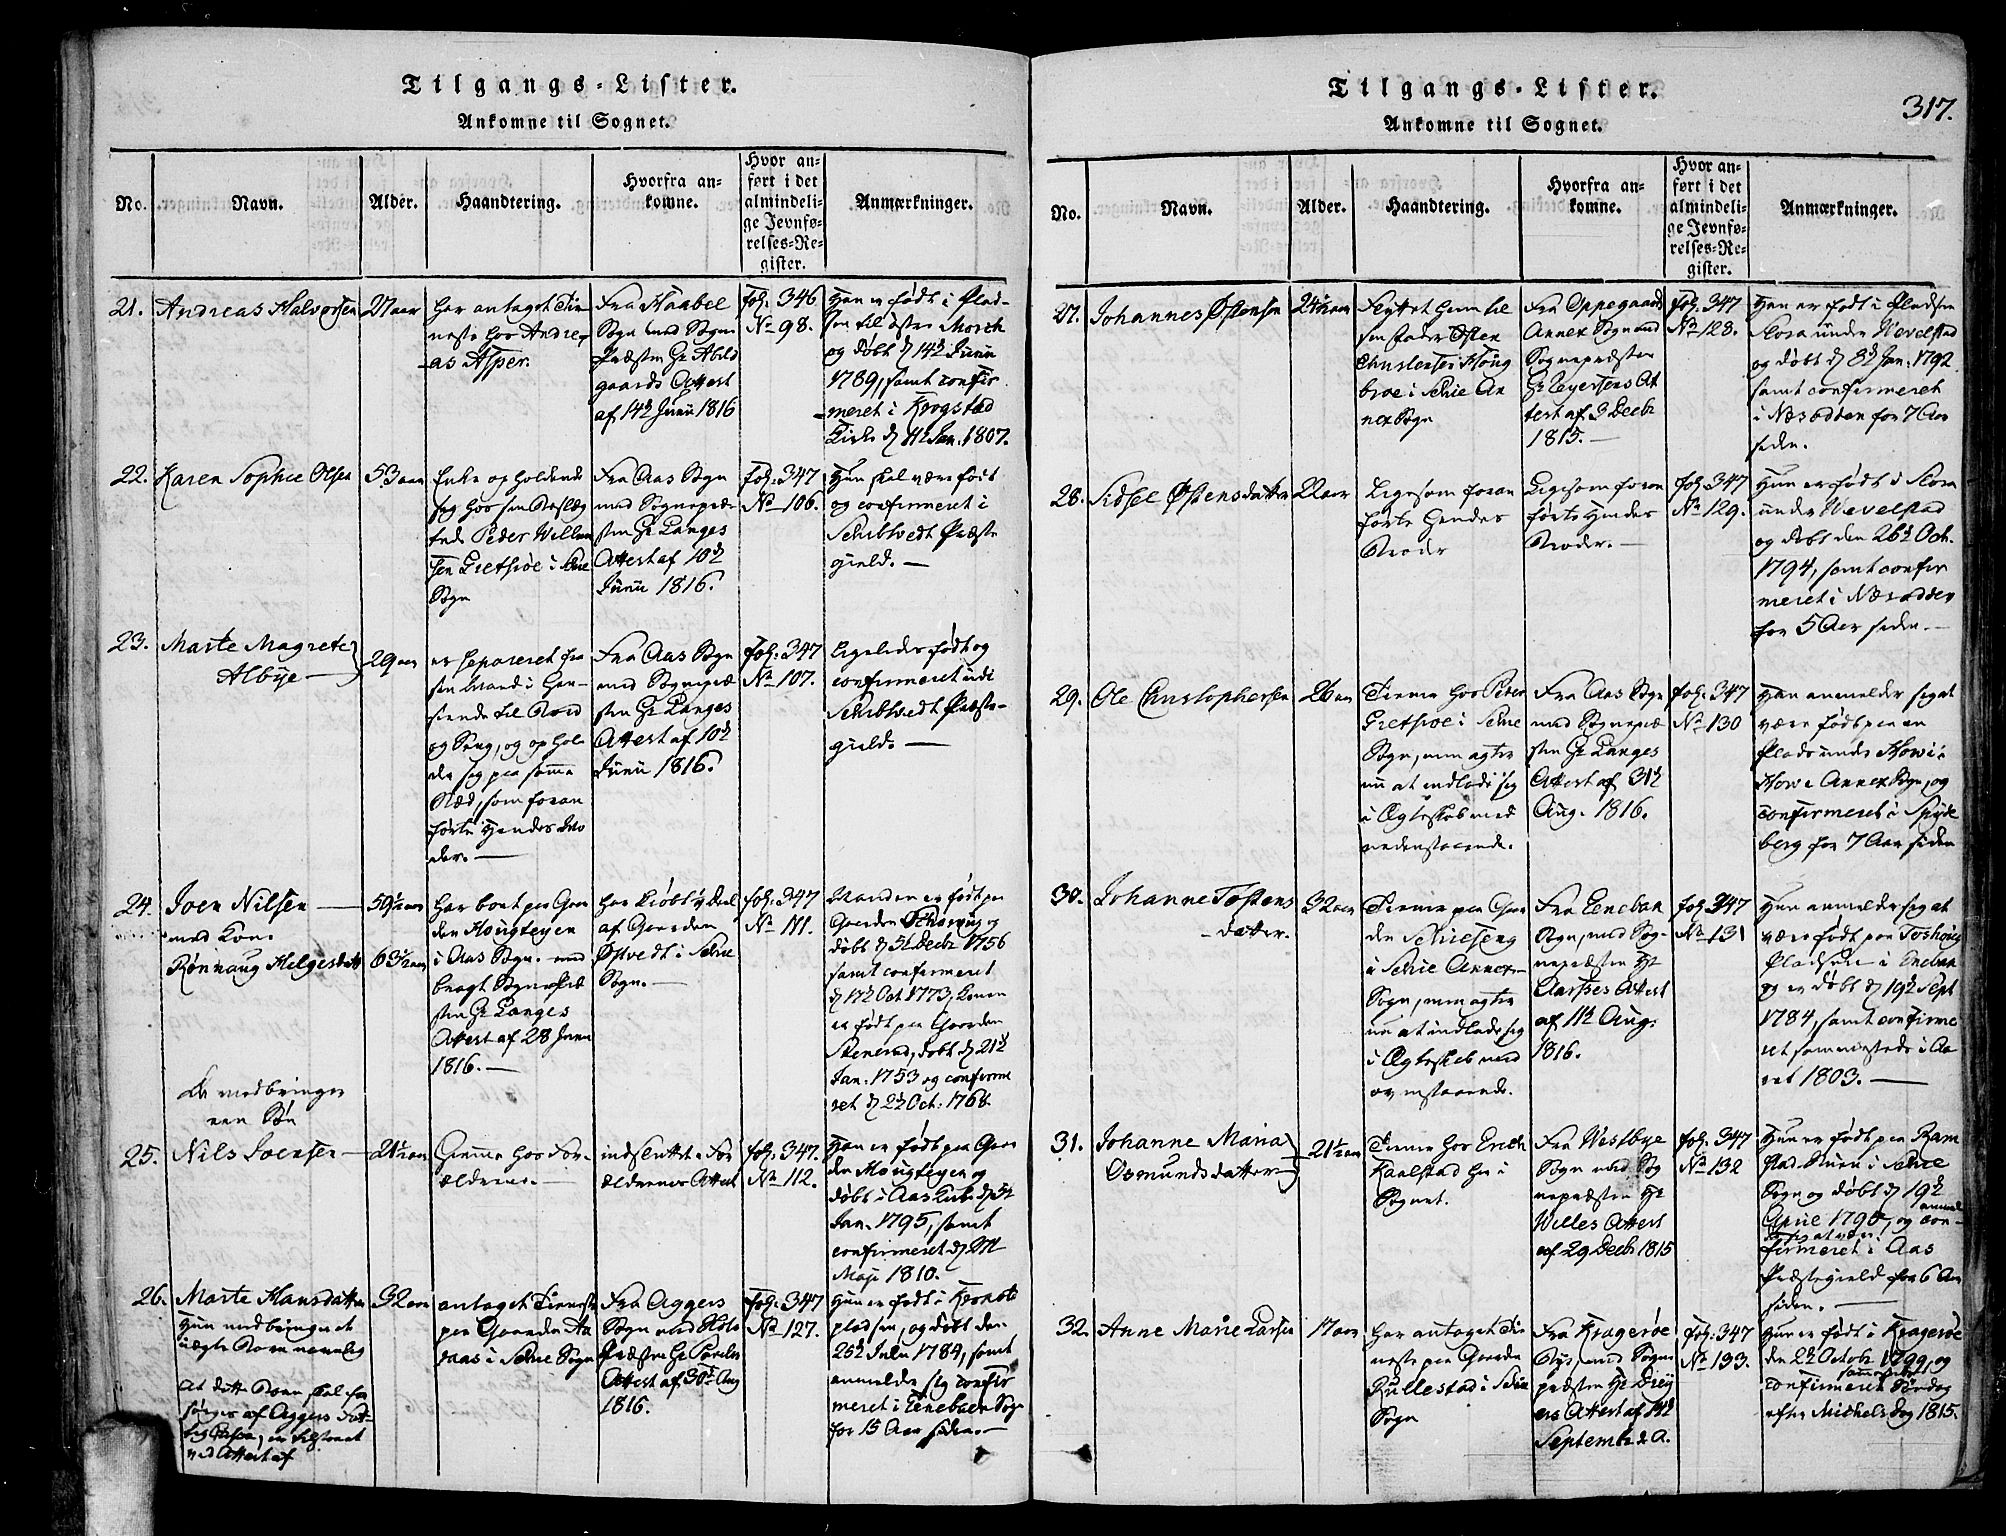 Tilgangs-Lister.
Ankomne til Sognet.
No.
Navn.
Alder.
Haandtering.
Hvorfra an-
komne.
Hvor an-
ført i det
almindeli-
ge Jevnfø-
relses-Re-
gister.
Anmærkninger.
21.
Andreas Halvorsen
27 aar
har antaget Tie-
neste hos Andre-
as Asper.
Fra Haabel
Sogn med Sogne
Præsten Hr Abild
gaards Attest
af 14de Junii 1816
fol: 346
No 98.
Han er født i Plad-
sen til østre Mosch
og døbt d 14de Junii
1789, samt confir
meret i Krogstad
Kirke d 11te Jan. 1807.
22.
Karen Sophie Olsen
53 aar
Enke opholdende
sig hos sin
Peder Willum
sen Gretsøe i Schie
Sogn
Fra Aas Sogn
med Sognepræ
sten Hr Langes
Attest af 10de
Junii 1816.
fol: 347
No 106.
Hun skal være født
og confirmeret i
Schibtvedt Præste
gield. —
23.
Marte Magrete
Albye —
29 aar
er separeret fra
sin Mand i Hen-
siende til Bord
og Seng, og ophol
der sig paa samme
Stæd, som foran
førte Hendes Mo
der. —
Fra Aas Sogn
med Sognepræ
sten Hr Langes
Attest af 10de
Junii 1816.
fol: 347
No 107.
Ligeledes født og
confirmeret udi
Schibtvedt Præste-
gield. —
24.
Joen Nilsen —
med Kone
Rønnaug Helgesdatt
de medbringer
een Søn
59½ aar
63½ aar
har boet paa Gaar
den Hougteyen
i Aas Sogn. med
bragt Sognepræ
sten Hr Langes
Attest af 28 Junii
1816. —
har kiøbt ½ Deel
af Gaarden
Østvedt i Schie
Sogn. —
fol: 347
No 111.
Manden er født paa
Gaarden og
døbt d 5te Decbr 1756
samt confirmeret
d 17de Oct 1773, Konen
er født paa Gaarden
Stenerud, døbt d 21de
Jan. 1753 og confirme
ret d 2de Oct. 1768.
25.
Nils Joensen —
21½ aar
Hiemme hos For-
ældrene. —
indsluttet i For
ældrenes Attest
fol: 347.
No 112.
Han er født paa Gaar
den Hougteyen og
døbt i Aas Kirke d 5te
Jan. 1795, samt
confirmeret d
Maji 1810.
26.
Marte Hansdatter
Hun medbringer et
uægte Barn nemlig
At dette Barn skal for
sørges af Aggers Fat-
er tilstaaet
ved Attest af
32 aar
antaget Tieneste
paa Gaarden Aa
raas i Schie Sogn
Fra Aggers
Sogn med
Præsten Hr
Attest af 30te Aug
1816.
fol: 347
No 127.
Hun er født i
pladsen, og døbt den
25de Julii 1784, samt
anmelder sig confir
meret i Enebach Sogn
for 15 Aar siden. —
Tilgangs-Lister.
Ankomne til Sognet.
317.
No.
Navn.
Alder.
Haandtering.
Hvorfra an-
komne.
Hvor an-
ført i det
almindeli-
ge Jevnfø-
relses-Re-
gister.
Anmærkninger.
27.
Johannes Østensen
24½ aar
Flyttet hiem til
sin Fader Østen
Christensen Houg
broe i Schie An
nex Sogn
Fra Oppegaard
Annex Sogn med
Sognepræsten
Hr Neyersens At
test af 3 Decbr
1815. —
fol: 347
No 128.
Han er født i Pladsen
Flora under Wevelstad
og døbt d 8de Jan. 1792
samt confirmeret
i Næsodden for 7 Aar
siden.
28.
Sidsel Østensdatter
22 aar
Ligesom foran
førte Hendes
Broder
Ligesom foran
førte Hendes
Broder. —
fol: 347
No 129.
Hun er født i Flora
under Wevelstad
og døbt den 26de Oct.
1794, samt confir
meret i Næsodden
for 5 Aar siden. —
29.
Ole Christophersen
26 aar
Tiener hos Peder
Gretsøe i Schie
Sogn, men agter
nu at indlade sig
i Ægteskab med
nedenstaaende.
Fra Aas Sogn
med Sognepræ
sten Hr Langes
Attest af 31te
Aug. 1816.
fol: 347
No 130
Han anmelder sig at
være født paa en
Plads under Howi i
Howe Annex Sogn, og
confirmeret i Spyde
berg for 7 Aar siden
30.
Johanne Tostens
datter.
32 aar
Tiener paa Gaar
den Schieseng
i Schie Annex-
Sogn, men agter
nu at indlade sig
i Ægteskab med
ovenstaaende.
Fra Eneback
Sogn, med Sog-
nepræsten Hr
Aarses Attest
af 11te Aug:
1816.
fol: 347
No 131
Hun anmelder sig at
være født paa Toshoug
Pladsen i Eneback
og er døbt d 19de Sept
1784, samt confirme
ret sammesteds i Aa
ret 1803. —
31.
Johanne Maria
Osmundsdatter
21½ aar
Tiener hos Erich
Kaalstad her i
Sognet.
Fra Westbye
Sogn med Sog
nepræsten Hr
Willes Attest
af 29 Decbr 1815
fol: 347
No 132
Hun er født paa Ram
stad Eien i Schie
Sogn og døbt d 19de
April 1795, og con-
firmeret i Aas
Præstegield for 6 Aar
siden. —
32.
Anne Marie Larsen
17 aar
har antaget Tie
neste paa Gaarden
Rullestad i Schie
Sogn
Fra Kragerøe
Bye, med Sogne
præsten Hr Drey
ers Attest af 14de
Septembr d. A.
fol: 347
No 133.
Hun er født i Kragerøe
den 2de Octob 1799, og
confirmeret sammesteds Søndag
efter Michels Dag 1815.